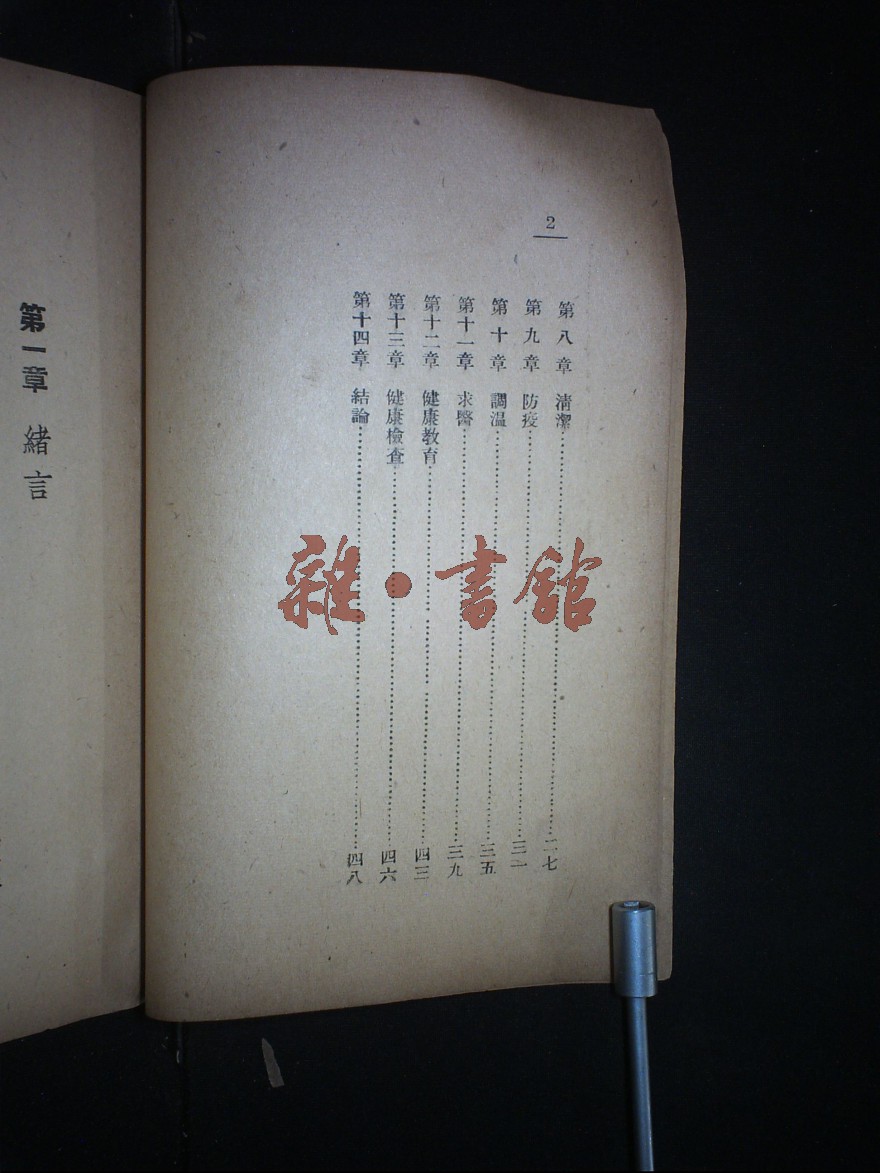 2
第八章 清潔 二七
第九章 防疫 三一
第十章 調温 三五
第十一章 求醫 三九
第十二章 健康教育 四三
第十三章 健康檢查 四六
第十四章 結論 四八
雜·書館
第一章 緒言